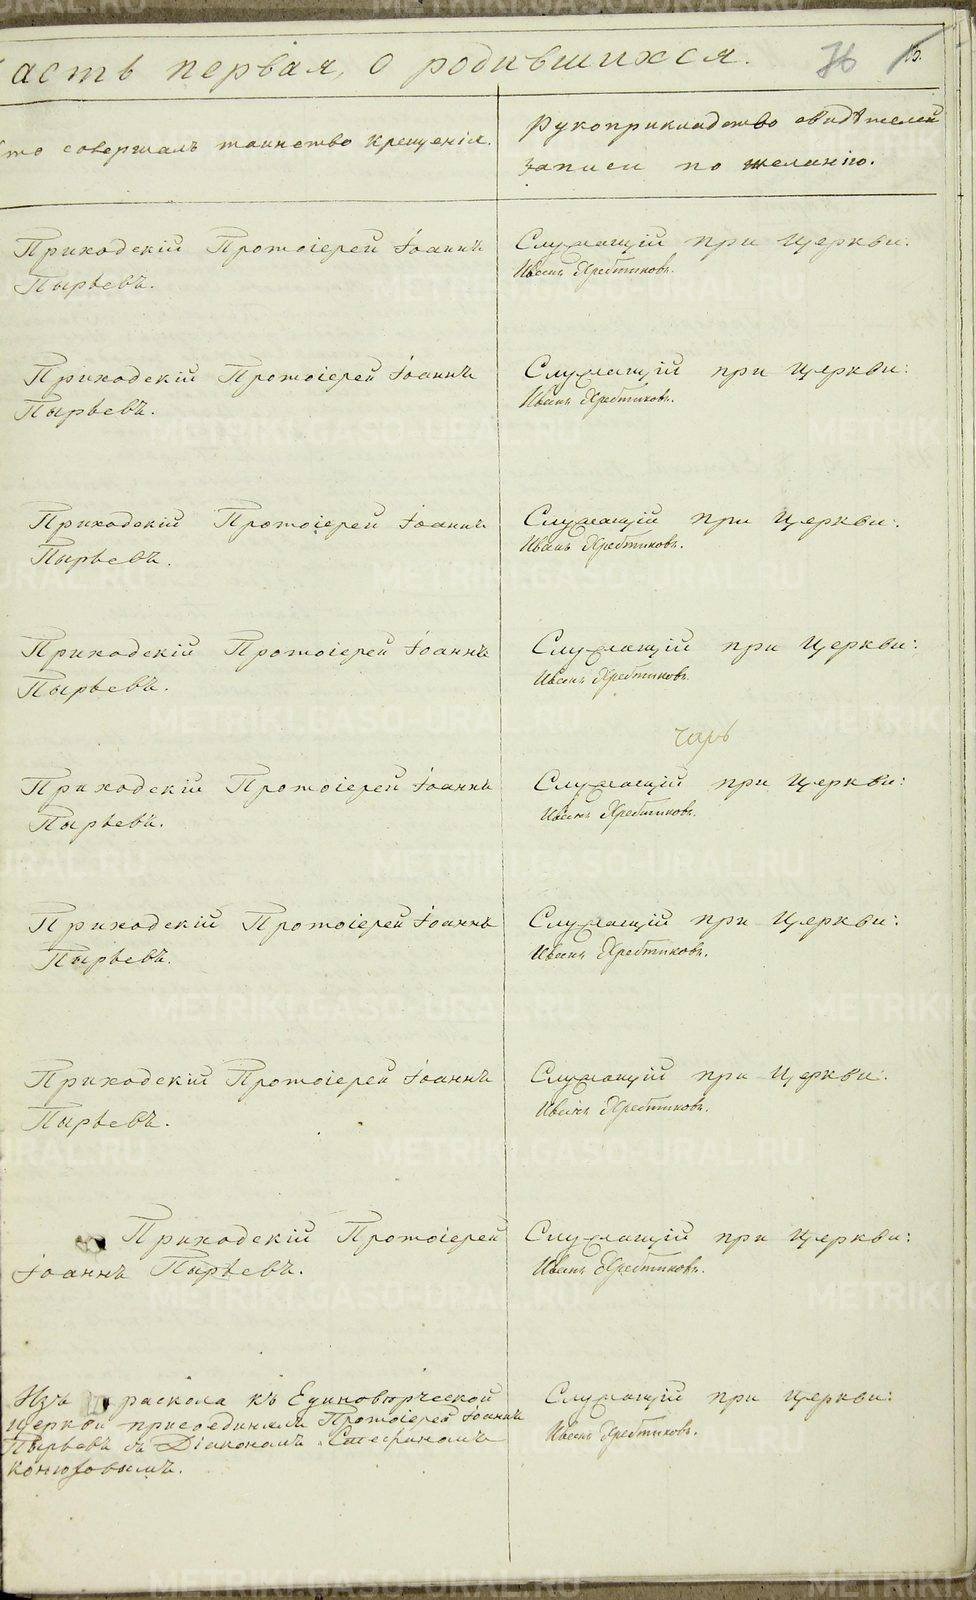 асть первая, о родившихся. 76 15.
то совершалъ таинство крещенія.
Рукоприкладство свидѣтелей
записи по желанію.
Приходскій Протоіерей Іоаннъ
Пырьевъ.
Служащій при Церкви:
Иванъ Хребтиковъ.
Приходскій Протоіерей Іоаннъ
Пырьевъ.
Служащій при Церкви:
Иванъ Хребтиковъ.
Приходскій Протоіерей Іоаннъ
Пырьевъ.
Служащій при Церкви:
Иванъ Хребтиковъ.
Приходскій Протоіерей Іоаннъ
Пырьевъ.
Служащій при Церкви:
Иванъ Хребтиковъ.
Приходскій Протоіерей Іоаннъ
Пырьевъ.
Служащій при Церкви:
Иванъ Хребтиковъ.
Приходскій Протоіерей Іоаннъ
Пырьевъ.
Служащій при Церкви:
Иванъ Хребтиковъ.
Приходскій Протоіерей Іоаннъ
Пырьевъ.
Служащій при Церкви:
Иванъ Хребтиковъ.
Приходскій Протоіерей
Іоаннъ Пырьевъ.
Служащій при Церкви:
Иванъ Хребтиковъ.
Изъ раскола къ Единовѣрческой
церкви присоединилъ Протоіерей Іоаннъ
Пырьевъ съ Діакономъ Стефаномъ
Конюховымъ.
Служащій при Церкви:
Иванъ Хребтиковъ.
METRIKI.GASO-URAL.RU